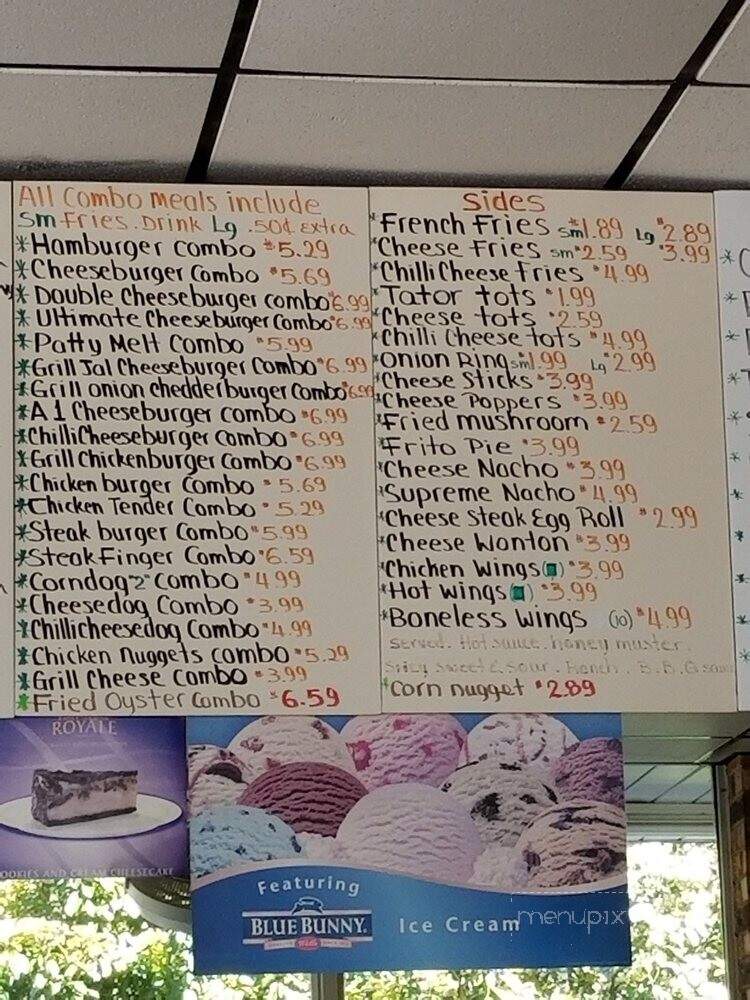 All Combo meals include
Sm Fries. Drink Lg .50¢ Extra
*Hamburger Combo $5.29
*Cheeseburger Combo $5.69
*Double Cheeseburger combo $6.99
*Ultimate Cheeseburger Combo $6.99
*Patty Melt Combo $5.99
*Grill Jal Cheeseburger Combo $6.99
*Grill onion chedderburger Combo $6.99
*A1 Cheeseburger combo $6.99
*ChilliCheeseburger combo $6.99
*Grill Chickenburger Combo $6.99
*Chicken burger Combo $5.69
*Chicken Tender Combo $5.29
*Steak burger Combo $5.99
*Steak Finger Combo $6.59
*Corndog "2" combo $4.99
*Cheesedog Combo $3.99
*Chillicheesedog Combo $4.99
*Chicken Nuggets combo $5.29
*Grill Cheese Combo $3.99
*Fried Oyster Combo $6.59
Sides
*French Fries sm $1.89 Lg $2.89
*Cheese Fries sm $2.59 $3.99
*Chilli Cheese Fries $4.99
*Tator tots $1.99
*Cheese tots $2.59
*Chilli Cheese tots $4.99
*Onion Ring sm $1.99 Lg $2.99
*Cheese Sticks $3.99
*Cheese Poppers $3.99
*Fried mushroom $2.59
*Frito Pie $3.99
*Cheese Nacho $3.99
*Supreme Nacho $4.99
*Cheese Steak Egg Roll $2.99
*Cheese Wonton $3.99
*Chicken Wings ( ) $3.99
*Hot wings ( ) $3.99
*Boneless Wings (10) $4.99
served. Hot sauce. honey muster.
Spicy Sweet & Sour. Ranch. B.B.Q sauce
*Corn nugget $2.89
ROYALE
COOKIES AND CREAM CHEESECAKE
Featuring
BLUE BUNNY.
Ice Cream
menupix